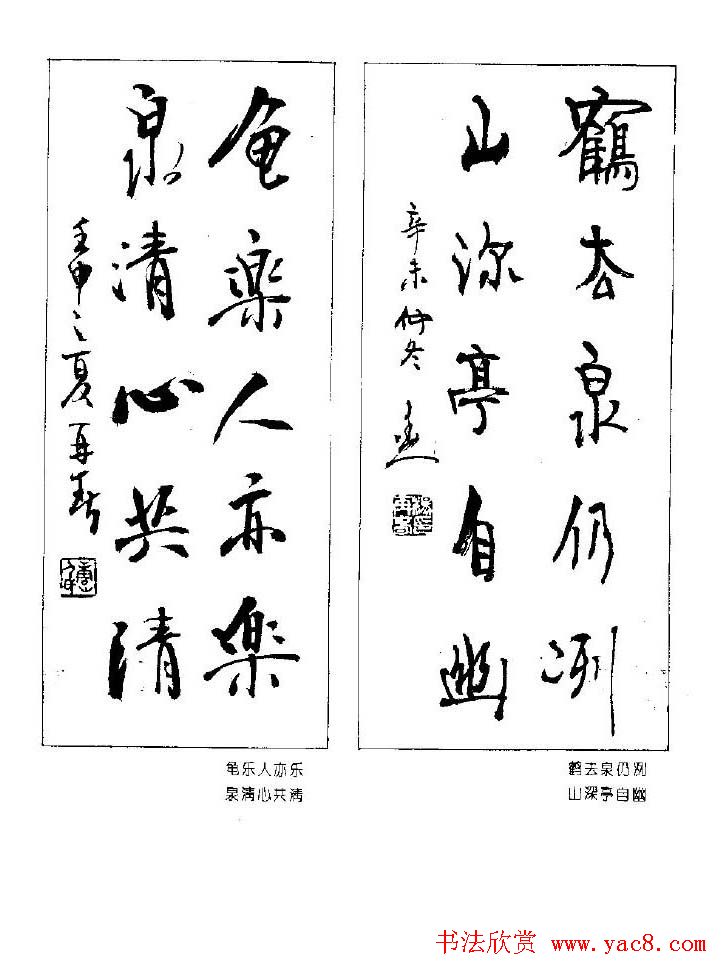 鶴去泉仍冽
山深亭自幽
辛未仲冬
龟樂人亦樂
泉清心共清
壬申之夏再春
鹤去泉仍冽
山深亭自幽
龟乐人亦乐
泉清心共清
书法欣赏 www.yac8.com